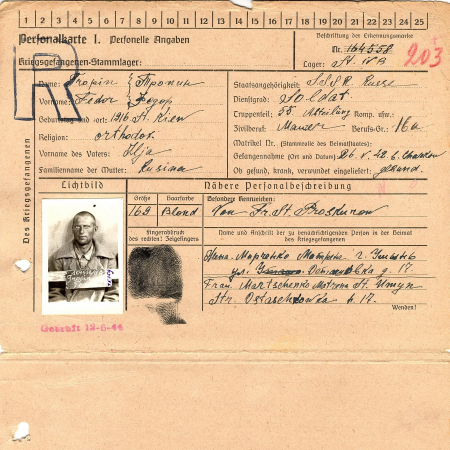 1 2 3 4 5 6 7 8 9 10 11 12 13 14 15 16 17 18 19 20 21 22 23 24 25
Personalkarte I. Personelle Angaben
Kriegsgefangenen-Stammlager:
Beschriftung der Erkennungsmarke
Nr. 164558
Lager: St. IV B
203
R
Des Kriegsgefangenen
Name: Tropin Тропин
Vorname: Fedor Федор
Geburtstag und -ort: 1916 St. Kiew
Religion: orthodox
Vorname des Vaters: Ilja
Familienname der Mutter: Rusina
Staatsangehörigkeit: SSSR Russe
Dienstgrad: Soldat
Truppenteil: 55 Abteilung Komp. usw.:
Zivilberuf: Maurer Berufs-Gr.: 16a
Matrikel Nr. (Stammrolle des Heimatstaates):
Gefangennahme (Ort und Datum): 26. V. 42 b. Charkow
Ob gesund, krank, verwundet eingeliefert: gesund.
Lichtbild
Nähere Personalbeschreibung
Größe Haarfarbe Besondere Kennzeichen:
169 Blond Von Fr. St. Proskurow
Fingerabdruck
des rechten! Zeigefingers
Name und Anschrift der zu benachrichtigenden Person in der Heimat
des Kriegsgefangenen
Жена. Марченко Матрена г. Умань
ул. Осташовка д. 17
Frau Martschenko Motrena St. Umyn
Str. Ostaschowka h. 17.
Wenden!
Geprüft 12-6-44